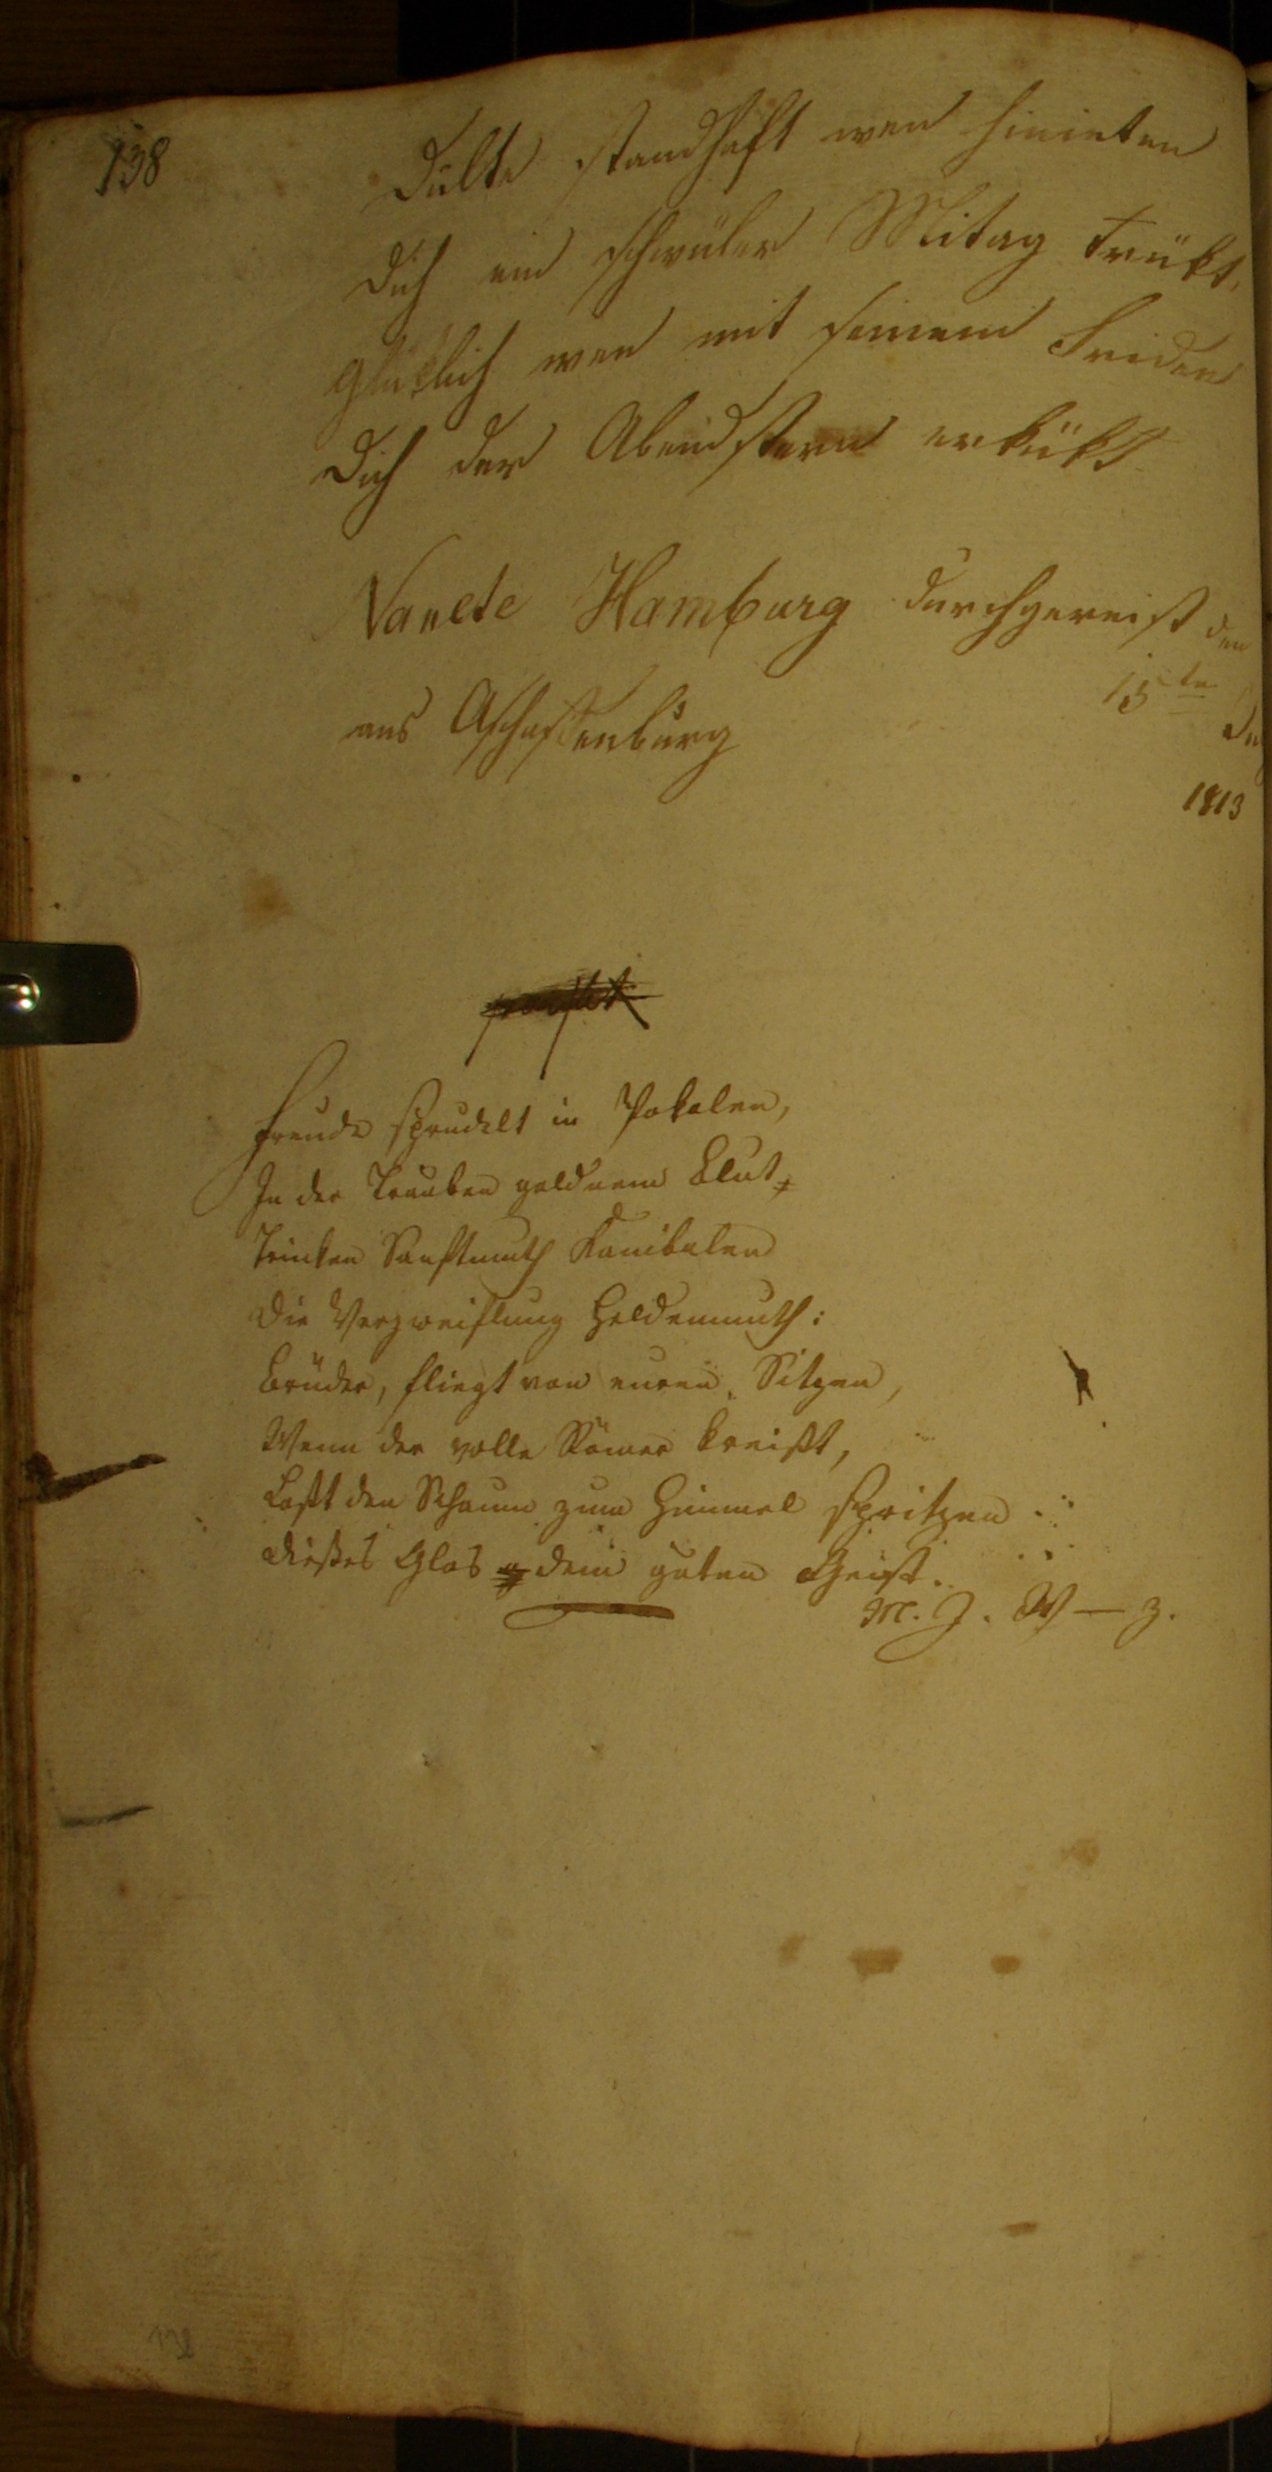 138
Dulte standhaft wen hinieten
dich ein schwüler Mitag trükt,
Glüklich wen mit seinem Friden
Dich der Abendstern erbükt
Nanete Hamburg durchgereist den
aus Aschaffenburg 15te
1813
Freude sprudelt in Pokalen,
In der Trauben goldnem Blut,
Trinken Sanftmuth Kanibalen
Die Verzweiflung Heldenmuth:
Brüder, fliegt von euren Sitzen,
Wenn der volle Römer kreißt,
Laßt den Schaum zum Himmel spritzen
Dießes Glas dem guten Geist.
M. J. W — z.
138